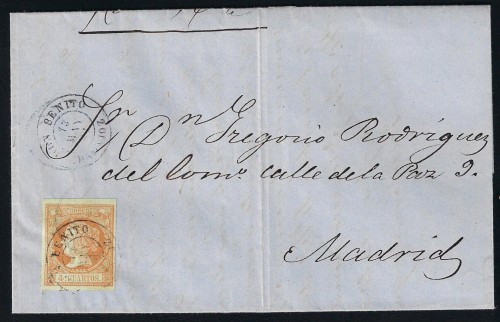 DON BENITO
13
Sr Dn Gregorio Rodríguez
del Come. calle de la Paz 9.
Madrid
BENITO
4 CUARTOS